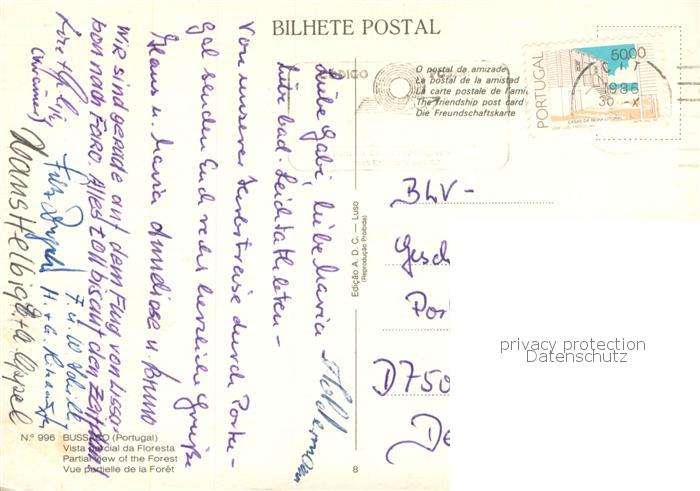 BILHETE POSTAL
O postal da amizade
La postal de la amistad
La carte postale de l'ami
The friendship post card
Die Freundschaftskarte
CÓDIGO
PORTUGAL
5000
CASAS DA BEIRA LITORAL
1986
30 -X
Liebe Gabi, liebe Maria
liebe bad. Leichtathleten -
Von unserer Herbstreise durch Portu-
gal senden Euch recht herzliche Grüße
Klaus u. Maria
u. Bruno
Wir sind gerade auf dem Flug von Lissa-
bon nach Faro. Alles toll bis auf den Zeitplan!
Fritz
F. u. W.
H. + G.
Hans Helbig
Appel
Edição A. D. C. — Luso
(Reprodução Proibida)
BLV-
Gesch
Pos
D 750
N.º 996 BUSSACO (Portugal)
Vista parcial da Floresta
Partial view of the Forest
Vue partielle de la Forêt
8
privacy protection
Datenschutz